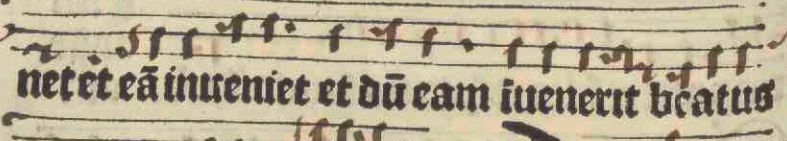 net et eā inueniet et dū eam īuenerit bēatus